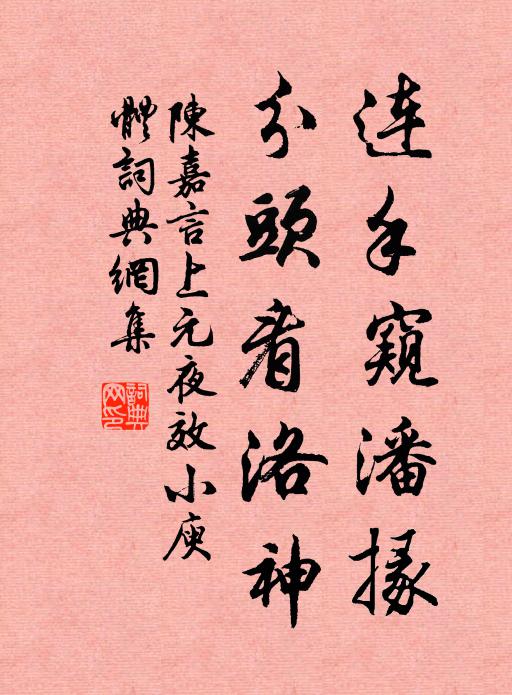 連手窺潘掾
分頭看洛神
陳嘉言上元夜效小庾
體詞典網集
詞典網印